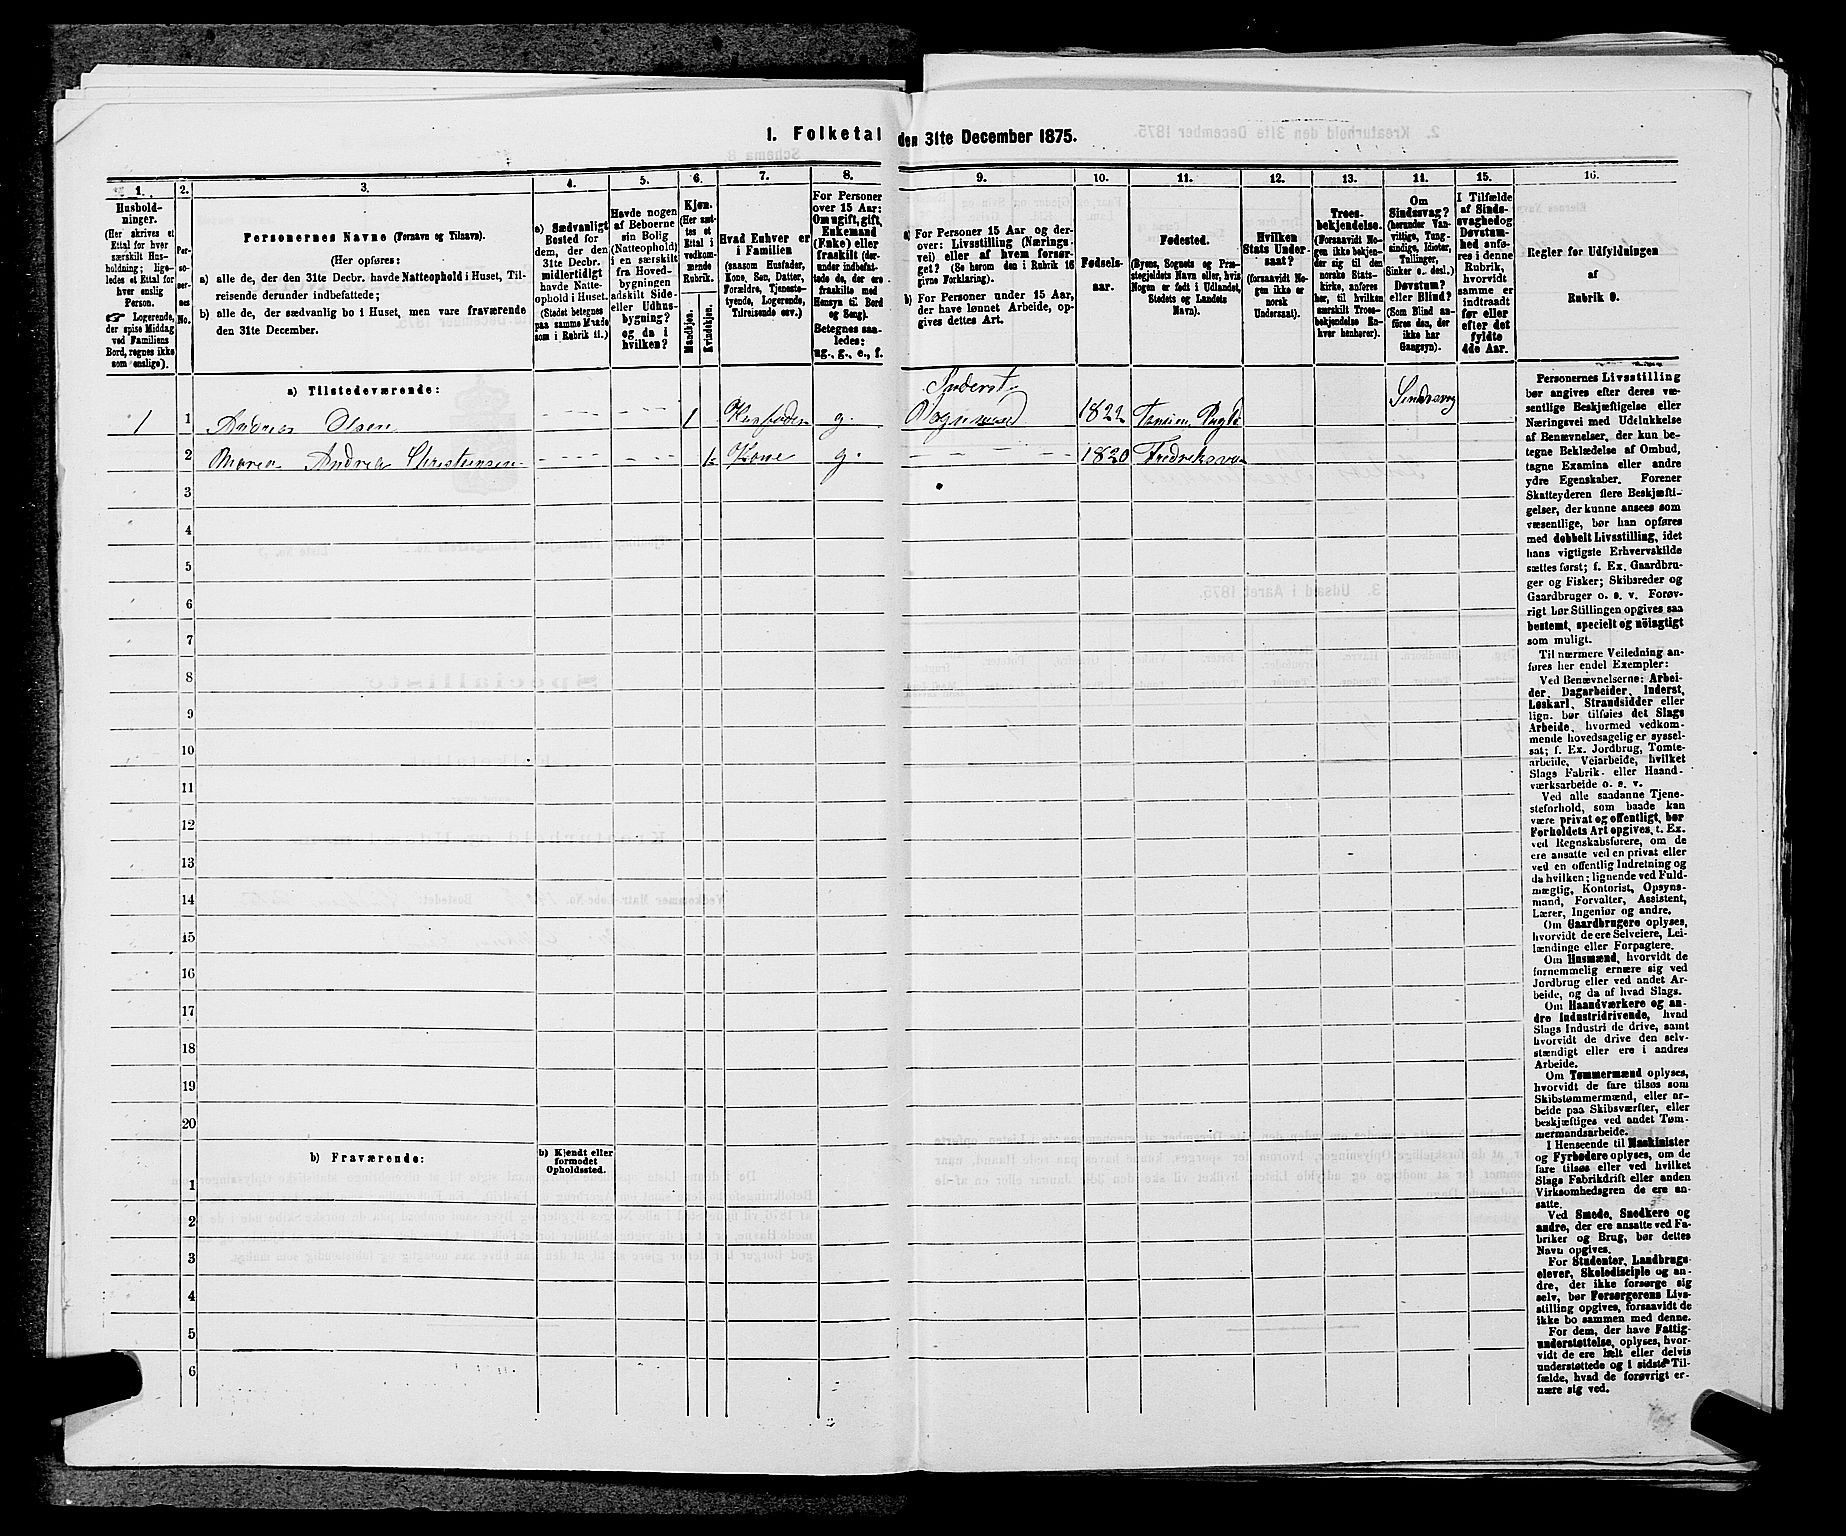 1. Folketal den 31te December 1875.
1. 2. 3. 4. 5. 6. 7. 8. 9. 10. 11. 12. 13. 14. 15. 16.
Hushold-
ninger.
(Her skrives et
Ettal for hver
særskilt Hus-
holdning; lige-
ledes et Ettal for
hver enslig
Person.
☞ Logerende,
der spise Middag
ved Familiens
Bord, regnes ikke
som enslige).
Per-
so-
ner-
nes
No.
Personernes Navne (Fornavn og Tilnavn).
(Her opføres:
a) alle de, der den 31te Decbr. havde Natteophold i Huset, Til-
reisende derunder indbefattede;
b) alle de, der sædvanlig bo i Huset, men vare fraværende
den 31te December.
a) Sædvanligt
Bosted for
dem, der den
31te Decbr.
midlertidigt
havde Natte-
ophold i Huset.
(Stedet betegnes
paa samme Maade
som i Rubrik 11.)
Havde nogen
af Beboerne
sin Bolig
(Natteophold)
i en særskilt
fra Hoved-
bygningen
adskilt Side-
eller Udhus-
bygning?
og da i
hvilken?
Kjøn.
(Her sæt-
tes et
Ettal i
vedkom-
mende
Rubrik.
Mandkjøn.
Kvindekjøn.
Hvad Enhver er
i Familien
(saasom Husfader,
Kone, Søn, Datter,
Forældre, Tjeneste-
tyende, Logerende,
Tilreisende osv.)
For Personer
over 15 Aar:
Om ugift, gift,
Enkemand
(Enke) eller
fraskilt (der-
under indbefat-
tede de, der ere
fraskilte med
Hensyn til Bord
og Seng).
Betegnes saa-
ledes:
ug., g., e., f.
a) For Personer 15 Aar og der-
over: Livsstilling (Nærings-
vei) eller af hvem forsør-
get? (Se herom den i Rubrik 16
givne Forklaring).
b) For Personer under 15 Aar,
der have lønnet Arbeide, op-
gives dettes Art.
Fødsels-
aar.
Fødested.
(Byens, Sognets og Præ-
stegjeldets Navn eller, hvis
Nogen er født i Udlandet,
Stedets og Landets
Navn).
Hvilken
Stats Under-
saat?
(forsaavidt No-
gen ikke er
norsk
Undersaat).
Troes-
bekjendelse.
(Forsaavidt No-
gen ikke bekjen-
der sig til den
norske Stats-
kirke, anføres
her, til hvilken
særskilt Troes-
bekjendelse En-
hver henhører).
Om
Sindssvag?
(herunder Van-
vittige, Tung-
sindige, Idioter,
Tullinger,
Sinker o. desl.)
Døvstum?
eller Blind?
(Som Blind an-
føres den, der
ikke har
Gangsyn).
I Tilfælde
af Sinds-
svaghed og
Døvstum-
hed anfø-
res i denne
Rubrik,
hvorvidt
samme er
indtraadt
før eller
efter det
fyldte
4de Aar.
Regler for Udfyldningen
af
Rubrik 9.
a) Tilstedeværende:
1 1 Andreas Olsen 1 Husfader g. Inderst 1822 Sindssvag
2 Maren Andrea Christensen 1 Kone g. 1820
3
4
5
6
7
8
9
10
11
12
13
14
15
16
17
18
19
20
b) Fraværende:
b) Kjendt eller
formodet
Opholdssted.
1
2
3
4
5
6
Personernes Livsstilling
bør angives efter deres væ-
sentlige Beskjæftigelse eller
Næringsvei med Udelukkelse
af Benævnelser, der kun be-
tegne Beklædelse af Ombud,
tagne Examina eller andre
ydre Egenskaber. Forener
Skatteyderen flere Beskjæfti-
gelser, der kunne ansees som
væsentlige, bør han opføres
med dobbelt Livsstilling, idet
hans vigtigste Erhvervskilde
sættes først; f. Ex. Gaardbru-
ger og Fisker; Skibsreder og
Gaardbruger o. s. v. Forøv-
rigt bør Stillingen opgives saa
bestemt, specielt og nöiagtigt
som muligt.
Til nærmere Veiledning an-
føres her endel Exempler:
Ved Benævnelserne: Arbei-
der, Dagarbeider, Inderst,
Løskarl, Strandsidder eller
lign. bør tilføies det Slags
Arbeide, hvormed vedkom-
mende hovedsagelig er syssel-
sat; f. Ex. Jordbrug, Tomte-
arbeide, Veiarbeide, hvilket
Slags Fabrik- eller Haand-
værksarbeide o. s. v.
Ved alle saadanne Tjene-
steforhold, som baade kan
være privat og offentligt, bør
Forholdets Art opgives, t. Ex.
ved Regnskabsførere, om de
ere ansatte ved en privat eller
ved en offentlig Indretning og
da hvilken; lignende ved Fuld-
mægtig, Kontorist, Opsyns-
mand, Forvalter, Assistent,
Lærer, Ingeniør og andre.
Om Gaardbrugere oplyses,
hvorvidt de ere Selveiere, Lei-
lændinge eller Forpagtere.
Om Husmænd, hvorvidt de
fornemmelig ernære sig ved
Jordbrug eller ved andet Ar-
beide, og da af hvad Slags.
Om Haandværkere og an-
dre Industridrivende, hvad
Slags Industri de drive, samt
hvorvidt de drive den selv-
stændigt eller ere i andres
Arbeide.
Om Tømmermænd oplyses,
hvorvidt de fare tilsøs som
Skibstømmermænd, eller ar-
beide paa Skibsværfter, eller
beskjæftiges ved andet Tøm-
mermandsarbeide.
I Henseende til Maskinister
og Fyrbødere oplyses, om de
fare tilsøs eller ved hvilket
Slags Fabrikdrift eller anden
Virksomhedsgren de ere an-
satte.
Ved Smede, Snedkere og
andre, der ere ansatte ved Fa-
briker og Brug, bør dettes
Navn opgives.
For Studenter, Landbrugs-
elever, Skoledisciple og an-
dre, der ikke forsørge sig
selv, bør Forsørgerens Livs-
stilling opgives, forsaavidt de
ikke bo sammen med denne.
For dem, der have Fattig-
understøttelse, oplyses, hvor-
vidt de ere helt eller delvis
understøttede og i sidste Til-
fælde, hvad de forøvrigt er-
nære sig ved.